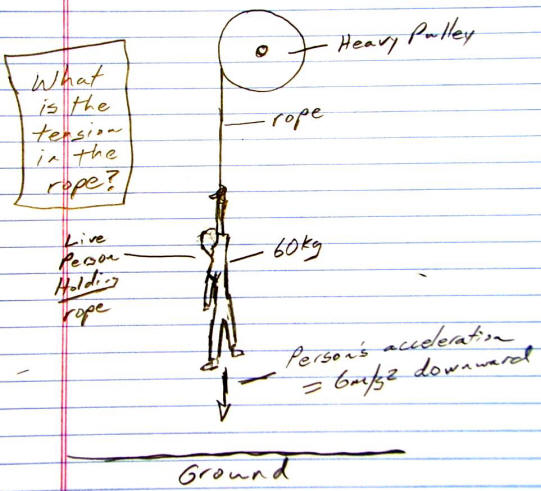 Heavy Pulley
What
is the
tension
in the
rope?
rope
Live
Person
Holding
rope
60kg
Person's acceleration
= 6m/s2 downward
Ground